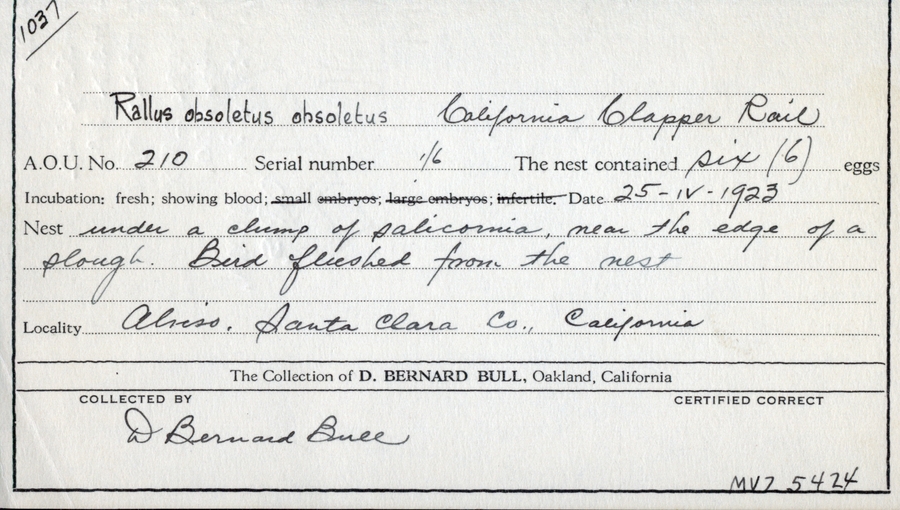 1037
Rallus obsoletus obsoletus California Clapper Rail
A.O.U. No. 210 Serial number 1/6 The nest contained six (6) eggs
Incubation: fresh; showing blood; small embryos; large embryos; infertile. Date 25-IV-1923
Nest under a clump of salicornia, near the edge of a
slough. Bird flushed from the nest
Locality Alviso. Santa Clara Co., California
The Collection of D. BERNARD BULL, Oakland, California
COLLECTED BY CERTIFIED CORRECT
D Bernard Bull
MVZ 5424